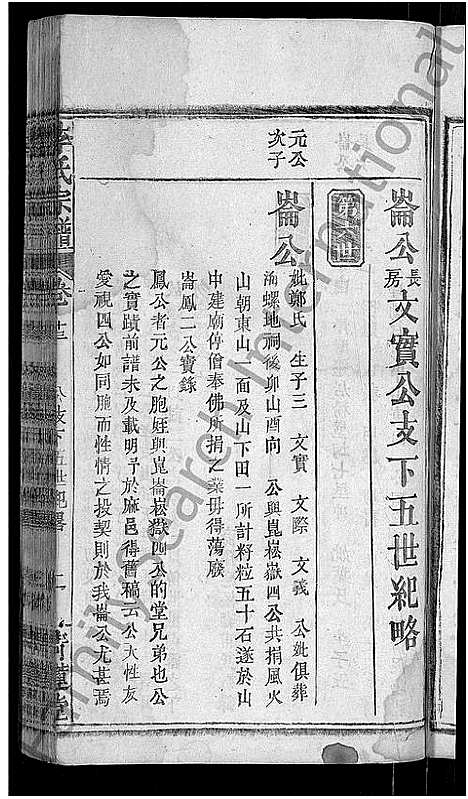 崙公長房文實公支下五世紀略
第八世
元公次子
崙公
妣鄭氏 生子三 文實 文際 文義 公妣俱葬
海螺地祠後卯山酉向 公與崑崧嶽四公共捐風火
山朝東山一面及山下田一所計籽粒五十石遂於山
中建廟傳僧奉佛所捐之業毋得蕩廢
崙鳳二公實錄
鳳公者元公之胞姪與崑崙崧嶽四公的堂兄弟也公
之實蹟前譜未及載明予於麻邑得舊稿云公大性友
愛視四公如同胞而性情之投契則於我崙公尤甚焉
李氏宗譜
卷廿三
八支下五世紀畧
FamilySearch International